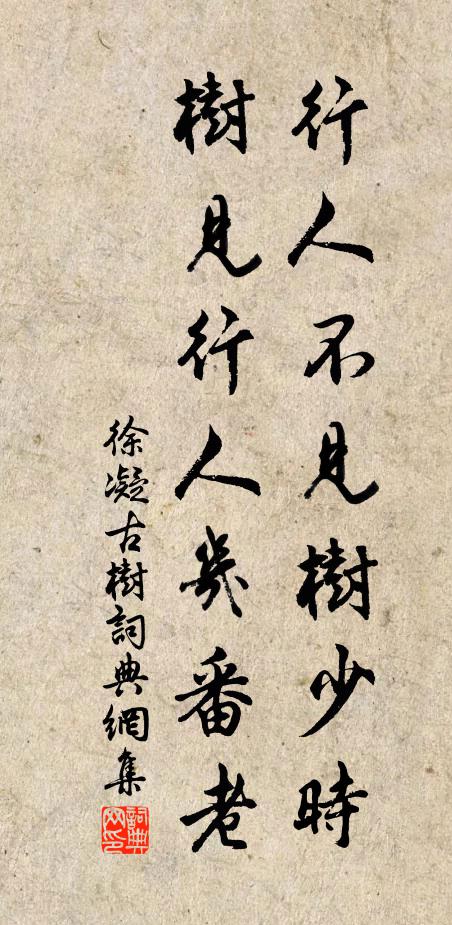 行人不見樹少時
樹見行人幾番老
徐凝古樹詞典網集
詞典
网印